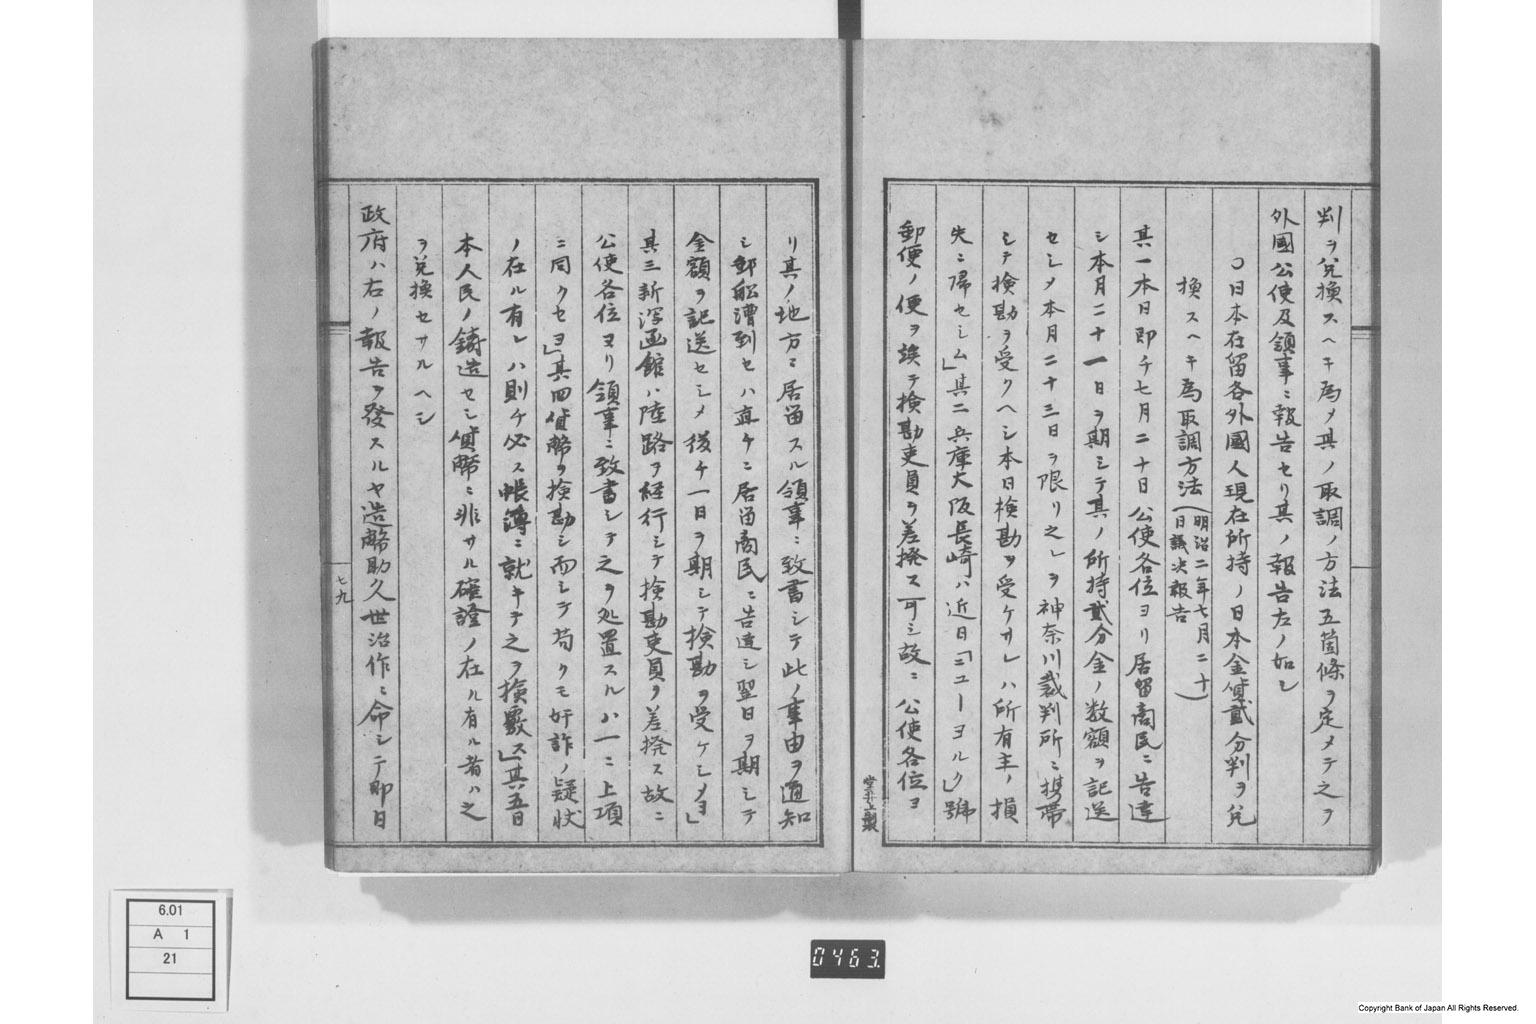 判ヲ兌換スヘキ為メ其ノ取調ノ方法五箇條ヲ定メテ之ヲ
外國公使及領事ニ報告セリ其ノ報告左ノ如シ
○日本在留各外國人現在所持ノ日本金貨貳分判ヲ兌
換スヘキ為取調方法(明治二年七月二十
日議决報告)
其一本日即チ七月二十日公使各位ヨリ居留商民ニ告達
シ本月二十一日ヲ期シテ其ノ所持貳分金ノ数額ヲ記送
セシメ本月二十三日ヲ限リ之レヲ神奈川裁判所ニ携帶
シテ検勘ヲ受クヘシ本日検勘ヲ受ケサレハ所有主ノ損
失ニ帰セシム」其二兵庫大阪長崎ハ近日「ニューヨルク」號
郵便ノ便ヲ俟テ検勘吏員ヲ差撥ス可シ故ニ公使各位ヨ
堂井上製
リ其ノ地方ニ居留スル領事ニ致書シテ此ノ事由ヲ通知
シ郵船漕到セハ直チニ居留商民ニ告達シ翌日ヲ期シテ
金額ヲ記送セシメ後チ一日ヲ期シテ検勘ヲ受ケシメヨ」
其三新潟函館ハ陸路ヲ経行シテ検勘吏員ヲ差撥ス故ニ
公使各位ヨリ領事ニ致書シテ之ヲ処置スルハ一ニ上項
ニ同クセヨ」其四貨幣ヲ検勘シ而シテ苟クモ奸詐ノ疑状
ノ在ル有レハ則ケ必ス帳簿ニ就キテ之ヲ検覈ス」其五日
本人民ノ鋳造セシ貨幣ニ非サル確證ノ在ル有ル者ハ之
ヲ兌換セサルヘシ
政府ハ右ノ報告ヲ發スルヤ造幣助久世治作ニ命シテ即日
七九
6.01
A 1
21
0463.
Copyright Bank of Japan All Rights Reserved.